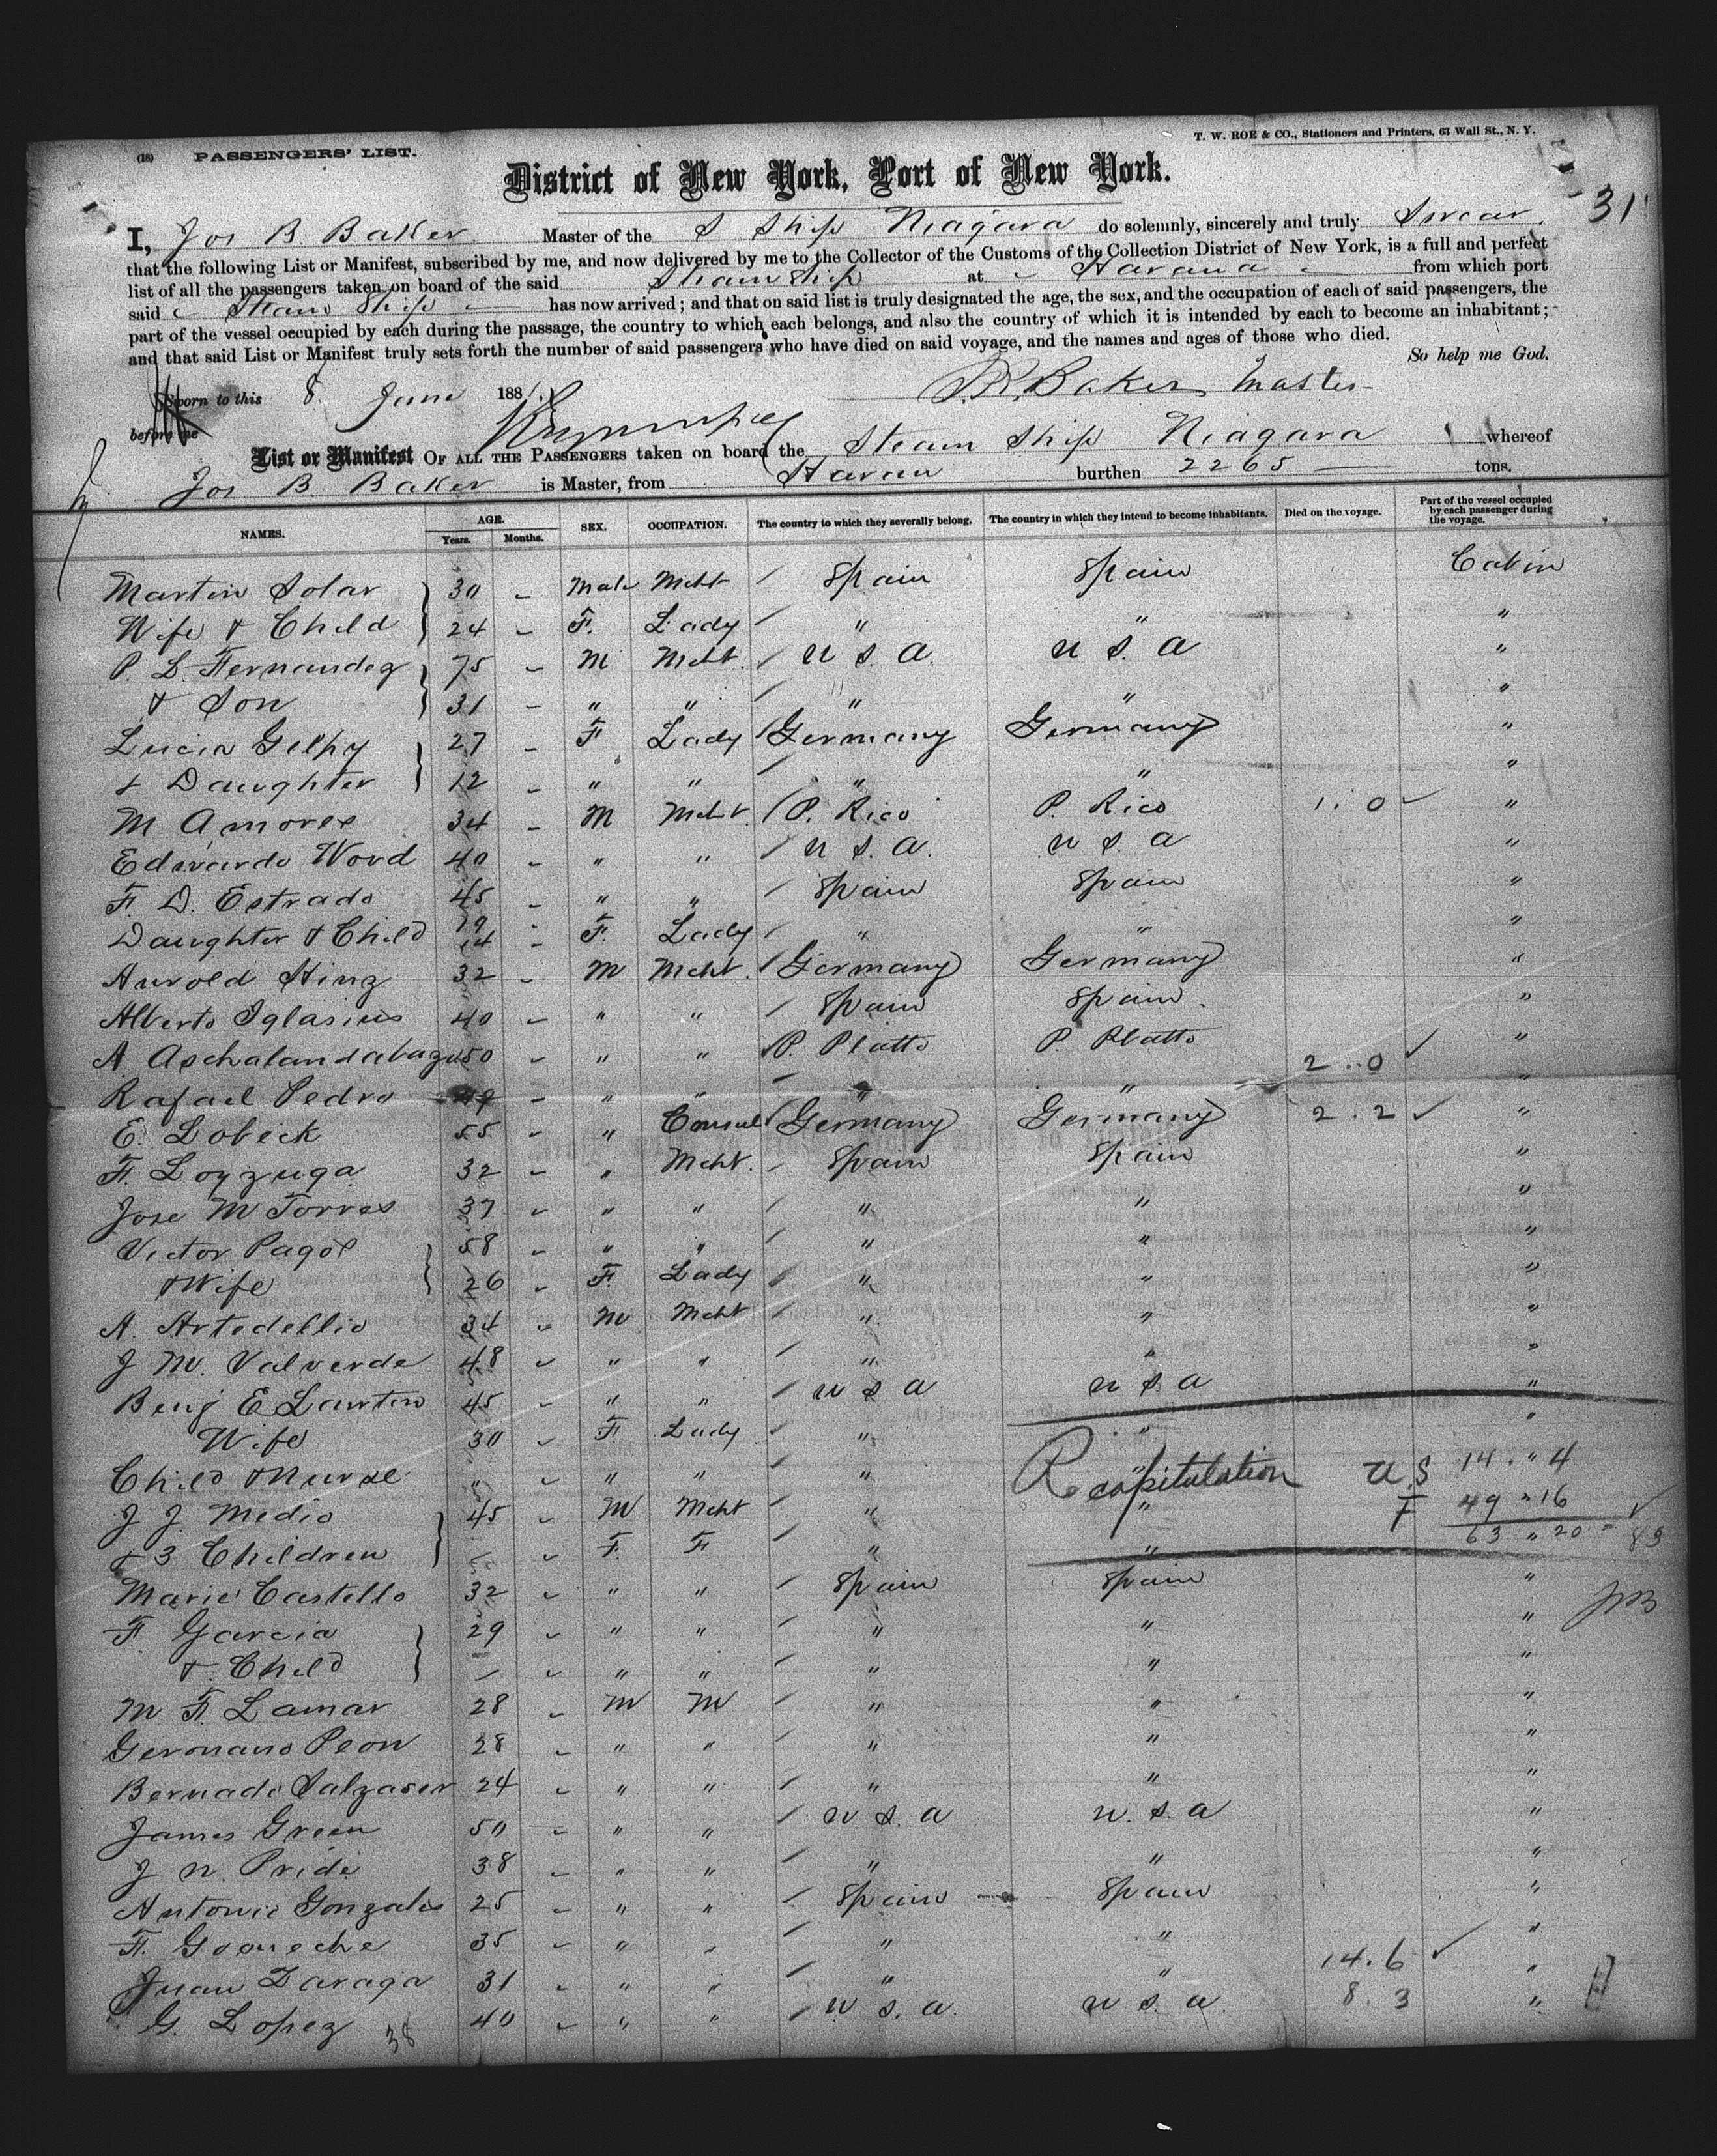 T. W. ROE & CO., Stationers and Printers, 63 Wall St., N. Y.
(18) PASSENGERS' LIST.
District of New York, Port of New York.
31
I, Jos B. Baker Master of the S Ship Niagara do solemnly, sincerely and truly Swear
that the following List or Manifest, subscribed by me, and now delivered by me to the Collector of the Customs of the Collection District of New York, is a full and perfect
list of all the passengers taken on board of the said Steam Ship at Havana from which port
said Steam Ship has now arrived; and that on said list is truly designated the age, the sex, and the occupation of each of said passengers, the
part of the vessel occupied by each during the passage, the country to which each belongs, and also the country of which it is intended by each to become an inhabitant;
and that said List or Manifest truly sets forth the number of said passengers who have died on said voyage, and the names and ages of those who died.
So help me God.
Sworn to this 8 June 188
J. B. Baker Master
before me
List or Manifest OF ALL THE PASSENGERS taken on board the Steam Ship Niagara whereof
Jos B. Baker is Master, from Havan burthen 2265 tons.
NAMES. AGE. Years. Months. SEX. OCCUPATION. The country to which they severally belong. The country in which they intend to become inhabitants. Died on the voyage. Part of the vessel occupied by each passenger during the voyage.
Martin Solar 30 - Male Mcht / Spain Spain Cabin
Wife & Child 24 - F. Lady / " " "
P. L. Fernandez 75 - M Mcht. / U S. A. U S. A "
& Son 31 - " " / " " "
Lucia Gelpy 27 - F Lady / Germany Germany "
& Daughter 12 - " " / " " "
M Amores 34 - M Mcht. / P. Rico P. Rico 1. 0 ✓ "
Edwardo Word 40 - " " / U S. A. U S. A "
F. D. Estrado 45 - " " / Spain Spain "
Daughter & Child 19 14 - F. Lady / " " "
Harold Hinz 32 - M Mcht. / Germany Germany "
Alberto Iglasius 40 - " " / Spain Spain. "
A Aschalandabagu 50 - " " / P. Platto P. Platto 2..0 ✓ "
Rafael Pedro 49 - " " / " " "
E. Lobeck 55 - " Consul / Germany Germany 2.2 ✓ "
F. Loyzuga 32 - " Mcht. / Spain Spain "
Jose M Torres 37 - " " / " " "
Victor Pagol 58 - " " / " " "
& Wife 26 - F. Lady / " " "
A. Artedellio 34 - M Mcht / " " "
J M. Valverde 48 - " " / " " "
Benj E Lawton 45 - " " / U S A U S A "
Wife 30 - F. Lady / " " "
Child & Nurse " - " " / " " Recapitulation U.S 14. " 4
J J. Medio 45 - M Mcht / " " F 49 " 16 ✓
& 3 Children - - F. F / " " 63 " 20 = 83
Marie Castello 32 - " " / Spain Spain "
F Garcia 29 - " " / " " " JBB
& Child - - " " / " " "
M F. Lamar 28 - M M / " " "
Germano Peon 28 - " " / " " "
Bernado Salzaser 24 - " " / " " "
James Green 50 - " " / U S. A U. S. A "
J N. Pride 38 - " " / " " "
Antonio Gonzales 25 - " " / Spain Spain "
F. Gooneche 35 - " " / " " "
Juan Zaraga 31 - " " / " " 14.6 ✓ "
G. Lopez 38 40 - " " / U S. A. U S. A. 8. 3 "